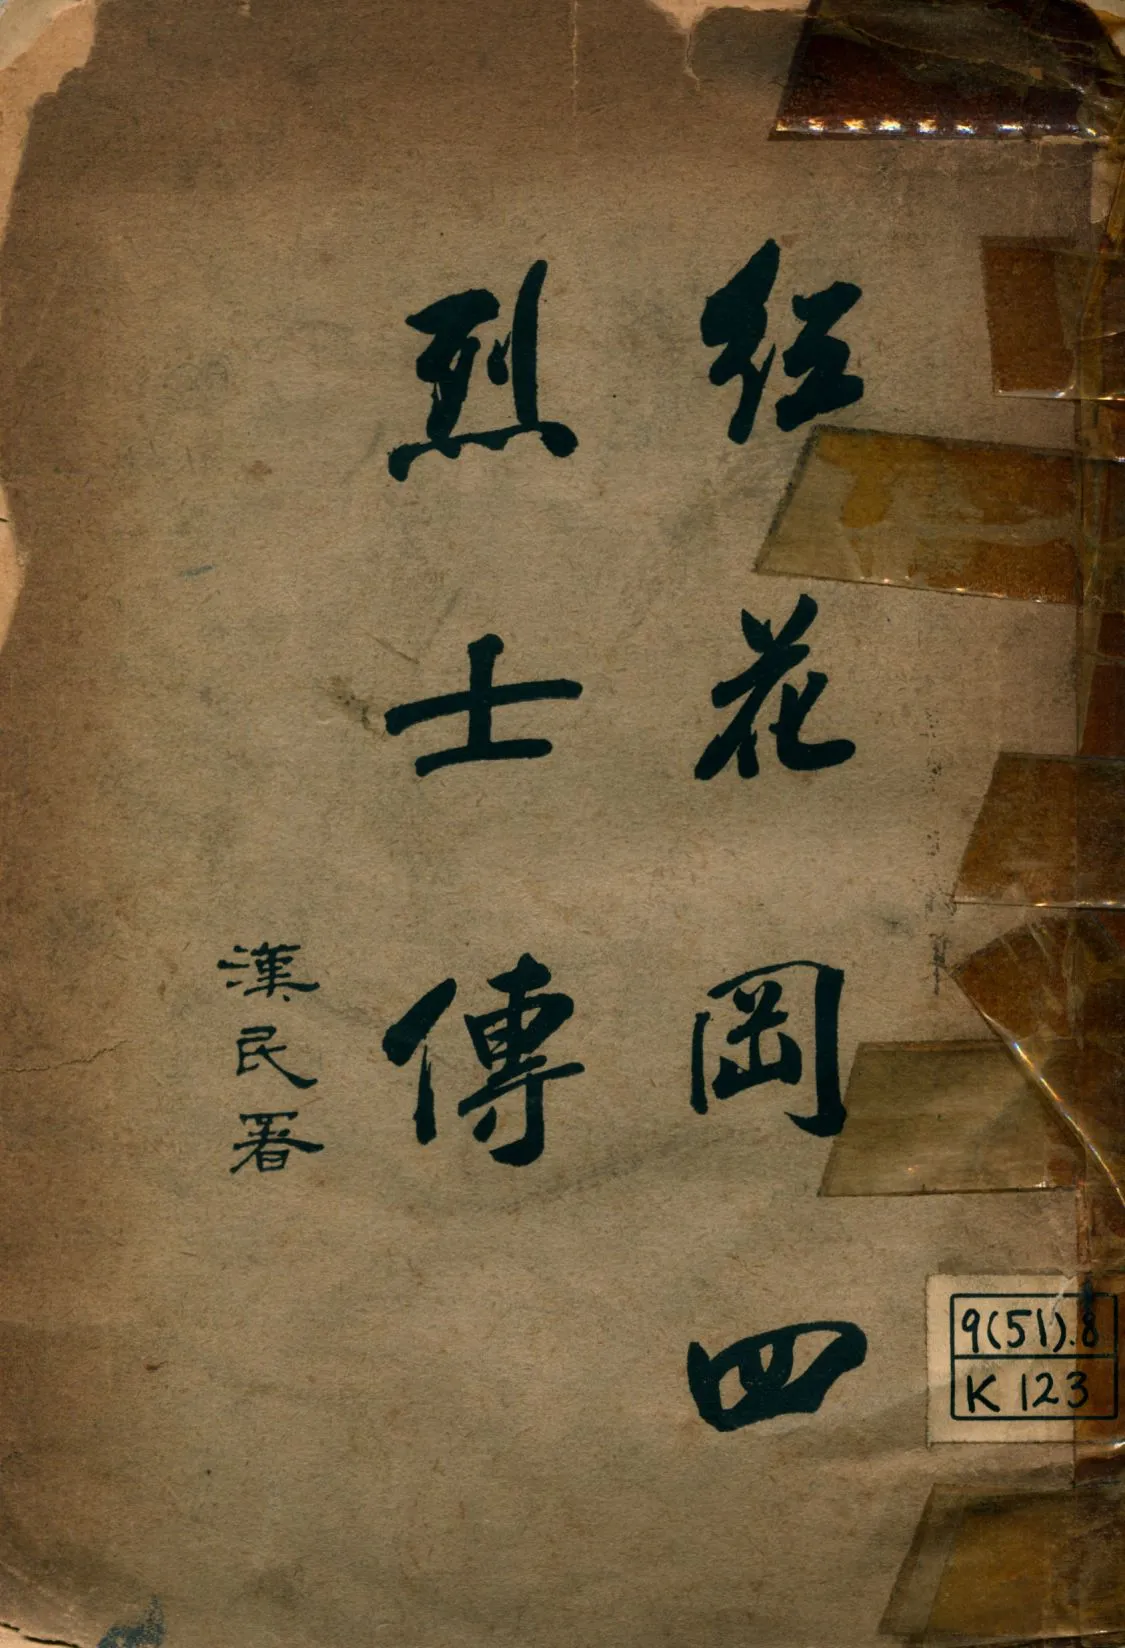 紅花岡四
烈士傳
漢民署
9(51).8
K 123